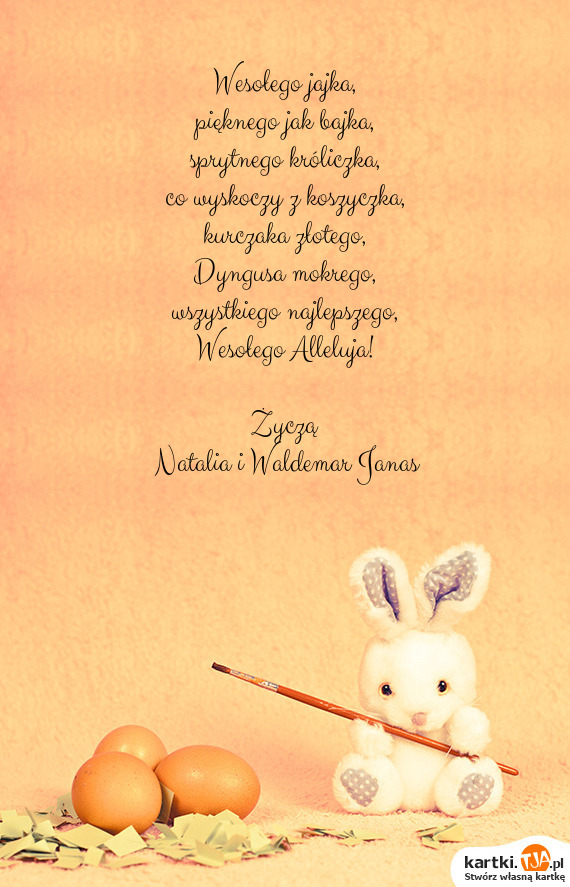 Wesołego jajka,
pięknego jak bajka,
sprytnego króliczka,
co wyskoczy z koszyczka,
kurczaka złotego,
Dyngusa mokrego,
wszystkiego najlepszego,
Wesołego Alleluja!
Życzą
Natalia i Waldemar Janas
kartki.TJA.pl
Stwórz własną kartkę